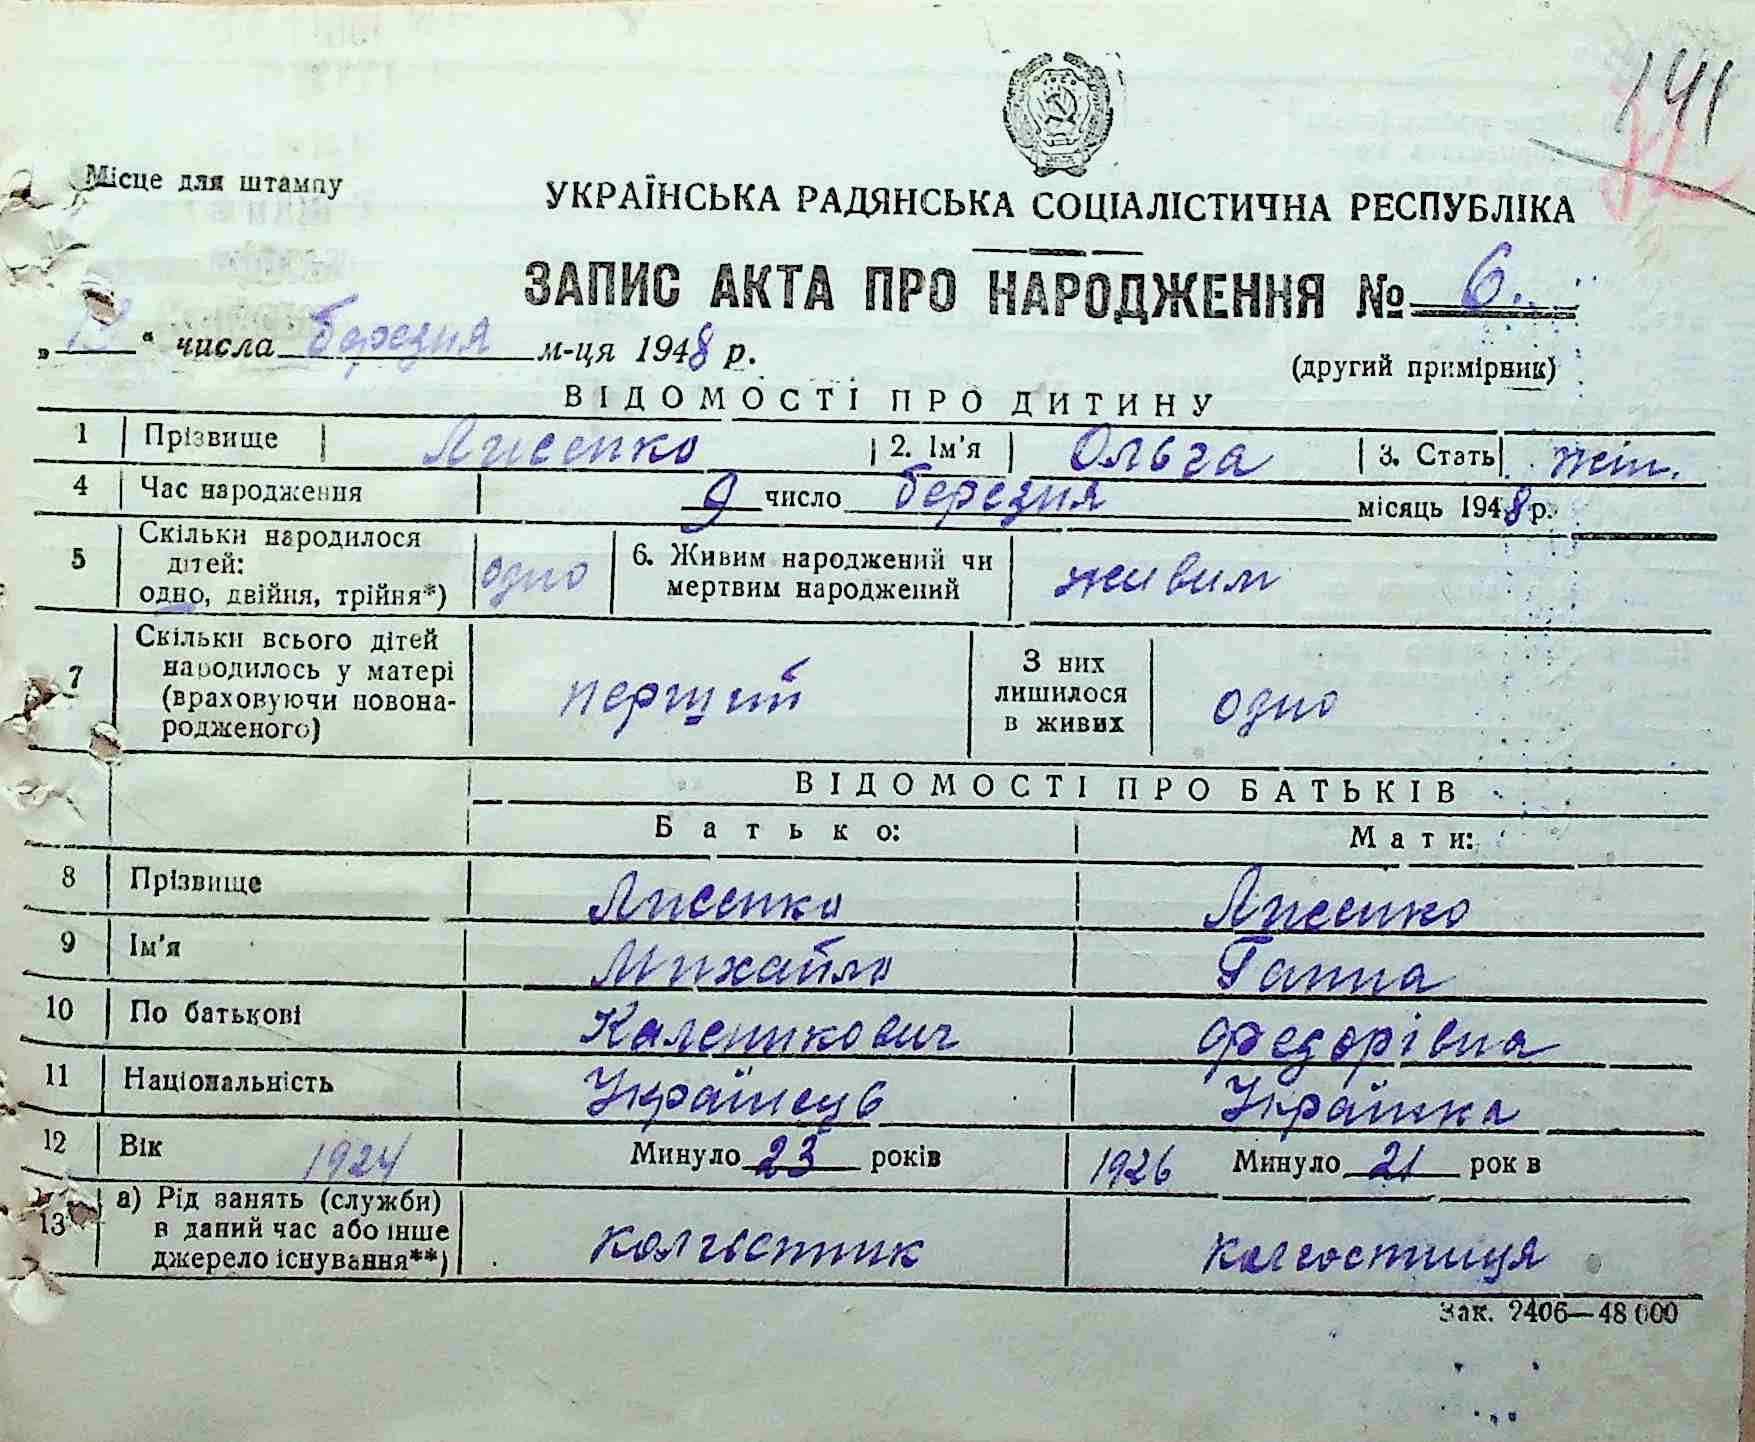 141
Місце для штампу
УКРАЇНСЬКА РАДЯНСЬКА СОЦІАЛІСТИЧНА РЕСПУБЛІКА
ЗАПИС АКТА ПРО НАРОДЖЕННЯ № 6.
„ “ числа березня м-ця 1948 р.
(другий примірник)
ВІДОМОСТІ ПРО ДИТИНУ
1 Прізвище Лисенко 2. Ім'я Ольга 3. Стать жін.
4 Час народження 9 число березня місяць 1948 р.
5 Скільки народилося дітей: одно, двійня, трійня*) одно 6. Живим народжений чи мертвим народжений живим
7 Скільки всього дітей народилось у матері (враховуючи новонародженого) перший З них лишилося в живих одно
ВІДОМОСТІ ПРО БАТЬКІВ
Батько: Мати:
8 Прізвище Лисенко Лисенко
9 Ім'я Михайло Ганна
10 По батькові Каленикович Федорівна
11 Національність Українець Українка
12 Вік 1924 Минуло 23 років 1926 Минуло 21 рок в
13 а) Рід занять (служби) в даний час або інше джерело існування**) колгоспник колгоспниця
Зак. 2406—48 000